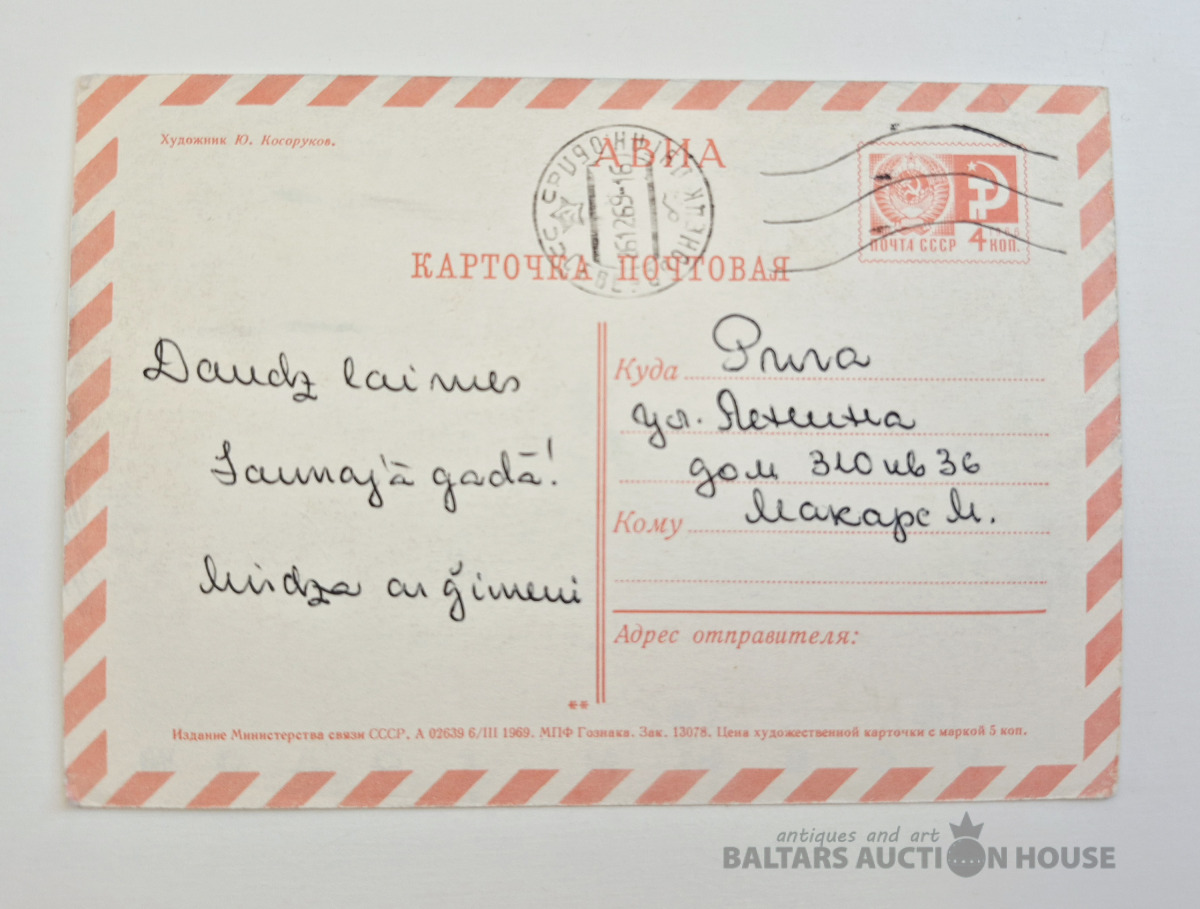 Художник Ю. Косоруков.
АВИА
261269-16
ПОЧТА СССР
4 КОП.
КАРТОЧКА ПОЧТОВАЯ
Daudz laimes
Jaunajā gadā!
Mirdza ar ģimeni
Куда Рига
ул. Ленина
дом 310 кв 36
Кому Макарс М.
Адрес отправителя:
**
Издание Министерства связи СССР. А 02639 6/III 1969. МПФ Гознака. Зак. 13078. Цена художественной карточки с маркой 5 коп.
antiques and art
BALTARS AUCTION HOUSE